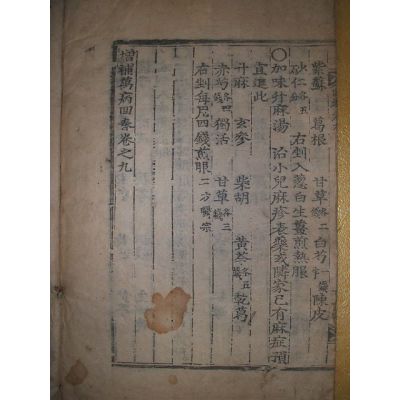 紫蘇 葛根 甘草各二 白芍一錢 陳皮
砂仁各五分 右剉入葱白生薑煎熱服
○加味升麻湯 治小兒麻疹表藥或隣家已有麻症預
宜進此
升麻 玄參 柴胡 黃芩各五錢 乾葛
赤芍各四錢 獨活 甘草各三錢
右剉每尼四錢煎服 二方醫宗
增補萬病回春卷之九